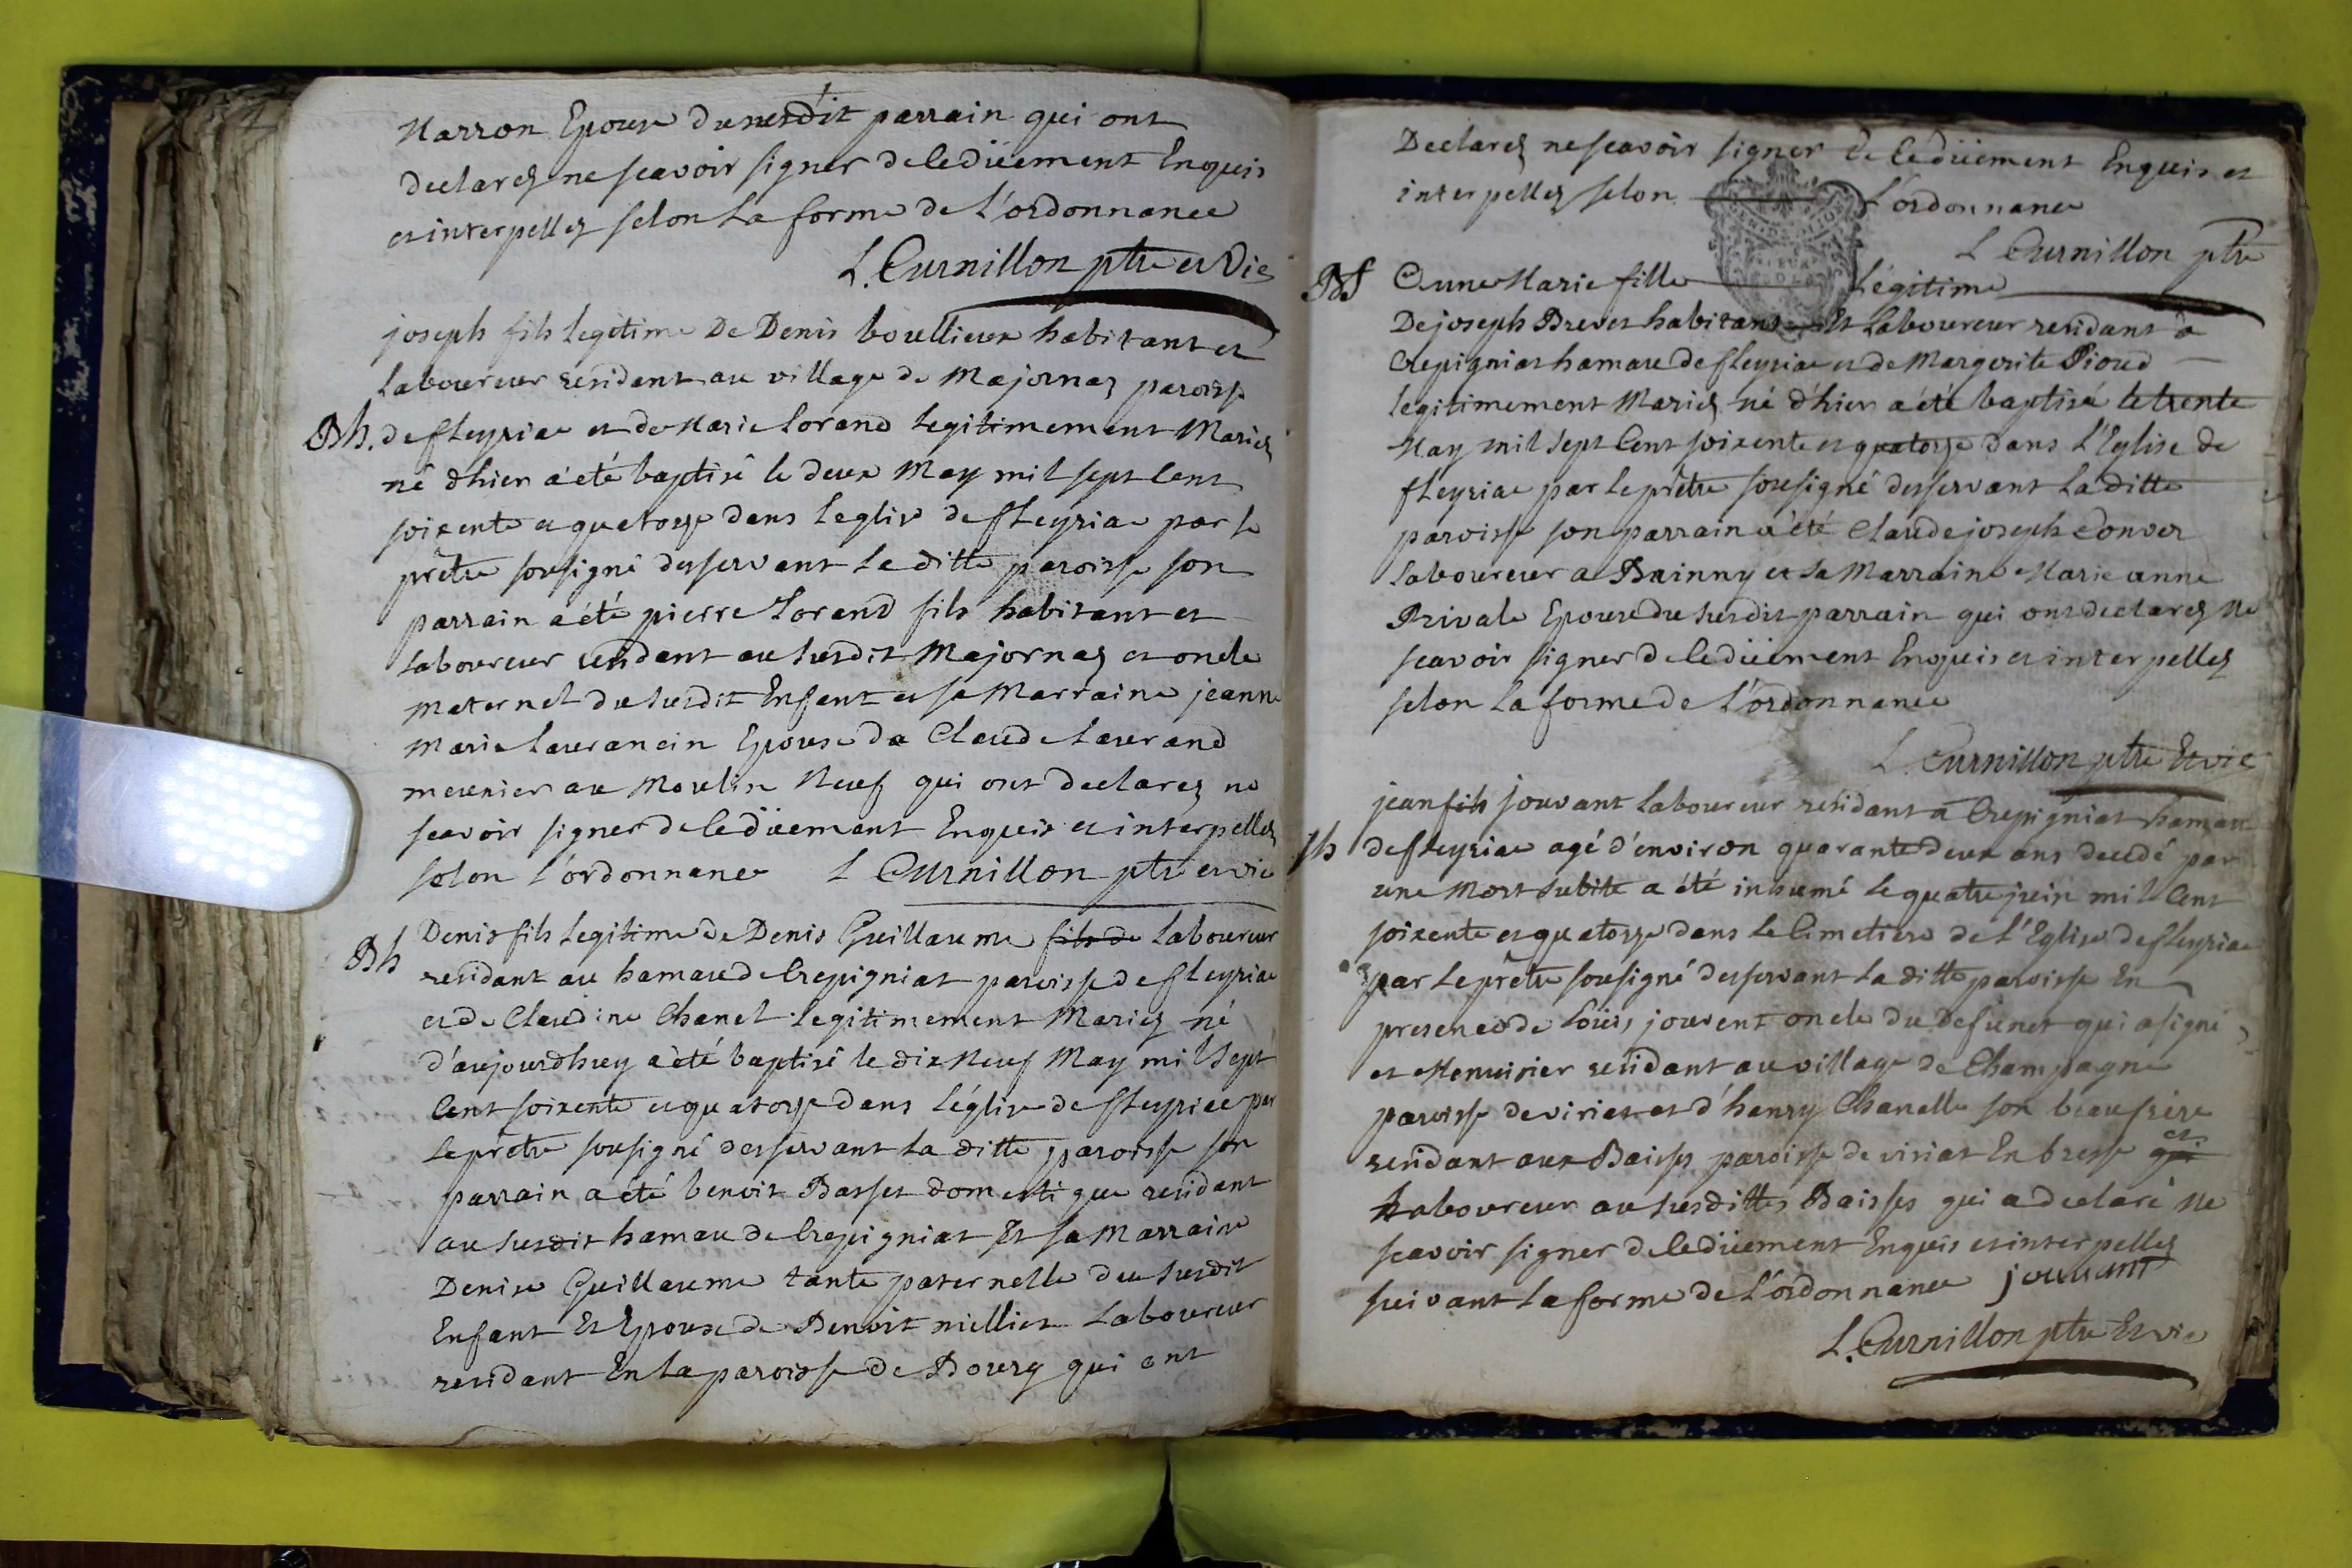 Marron Epouse du susdit parrain qui ont
declarez ne scavoir signer de ce düement Enquis
et interpellez selon la forme de l'ordonnance
L. Curnillon ptre et vic
joseph fils legitime De Denis boullieux habitant et
laboureur residant au village de Majornaz paroisse
Bh. de fleyriac et de Marie Lorand legitimement Mariez
né d'hier a été baptisé le deux May mil sept cent
soixente et quatorze dens leglise de fleyriac par le
prêtre sousigné desservant la ditte paroisse son
parrain a été pierre Lorand fils habitant et
laboureur residant au susdit Majornaz et oncle
maternel du susdit Enfent et sa Marraine jeanne
Marie Laurancin Epouse da Claude Laurand
meunier au Moulin Neuf qui ont declarez ne
scavoir signer de ce düemant Enquis et interpellez
selon l'ordonnance L Curnillon ptre et vic
Denis fils legitime de Denis Guillaume fils de laboureur
Bh residant au hamau de Crepigniat paroisse de fleyriac
et de Claudine Chanel legitimement Mariez né
d'aujourdhuy a été baptisé le dix Neuf May mil sept
Cent soixente et quatorze dans l'église de fleyriac par
le prêtre sousigné desservant la ditte paroisse son
parrain a été benoit Basset domestique residant
au susdit hamau de Crepigniat Et sa Marraine
Denise Guillaume tante paternelle du susdit
Enfant Et Epouse de Benoit niellier laboureur
residant En la paroisse de Bourg qui ont
Declarez ne scavoir signer de ce düement Enquis et
interpellez selon l'ordonnance
L Curnillon ptre
Bf Anne Marie fille légitime
De joseph Brevet habitant Et laboureur residant à
Crepigniat hamau de fleyriac et de Margerite Pioud
legitimement Mariez né d'hier a été baptisé le trente
May mil sept Cent soixente et quatorze dans l'Eglise de
fleyriac par le prêtre sousigné desservant la ditte
paroisse son parrain a été Claude joseph Convert
laboureur a Brinny et sa Marraine Marie anne
Privale Epouse du susdit parrain qui ont declarez Ne
scavoir signer de ce düement Enquis et interpellez
selon la forme de l'ordonnance
L. Curnillon ptre Et vic
jean fils jouvant laboureur residant a Crepigniat hamau
sh de fleyriac agé d'environ quarante deux ans decedé par
une Mort subite a été inhumé le quatre juin mil Cent
soixente et quatorze dans le Cimetiere de l'Eglise de fleyriac
par le prêtre sousigné desservant la ditte paroisse En
presence de Loüis jouvent oncle du Defunct qui a signé
et Menuisier residant au village de Champagne
paroisse de viriat et d'henry Chanelle son beau frère
residant aux Baisses paroisse de viriat En bresse qui et
Laboureur au susdittes Baisses qui a declaré Ne
scavoir signer de ce düement Enquis et interpellez
suivant la forme de l'ordonnance jouvant
L. Curnillon ptre Et vic